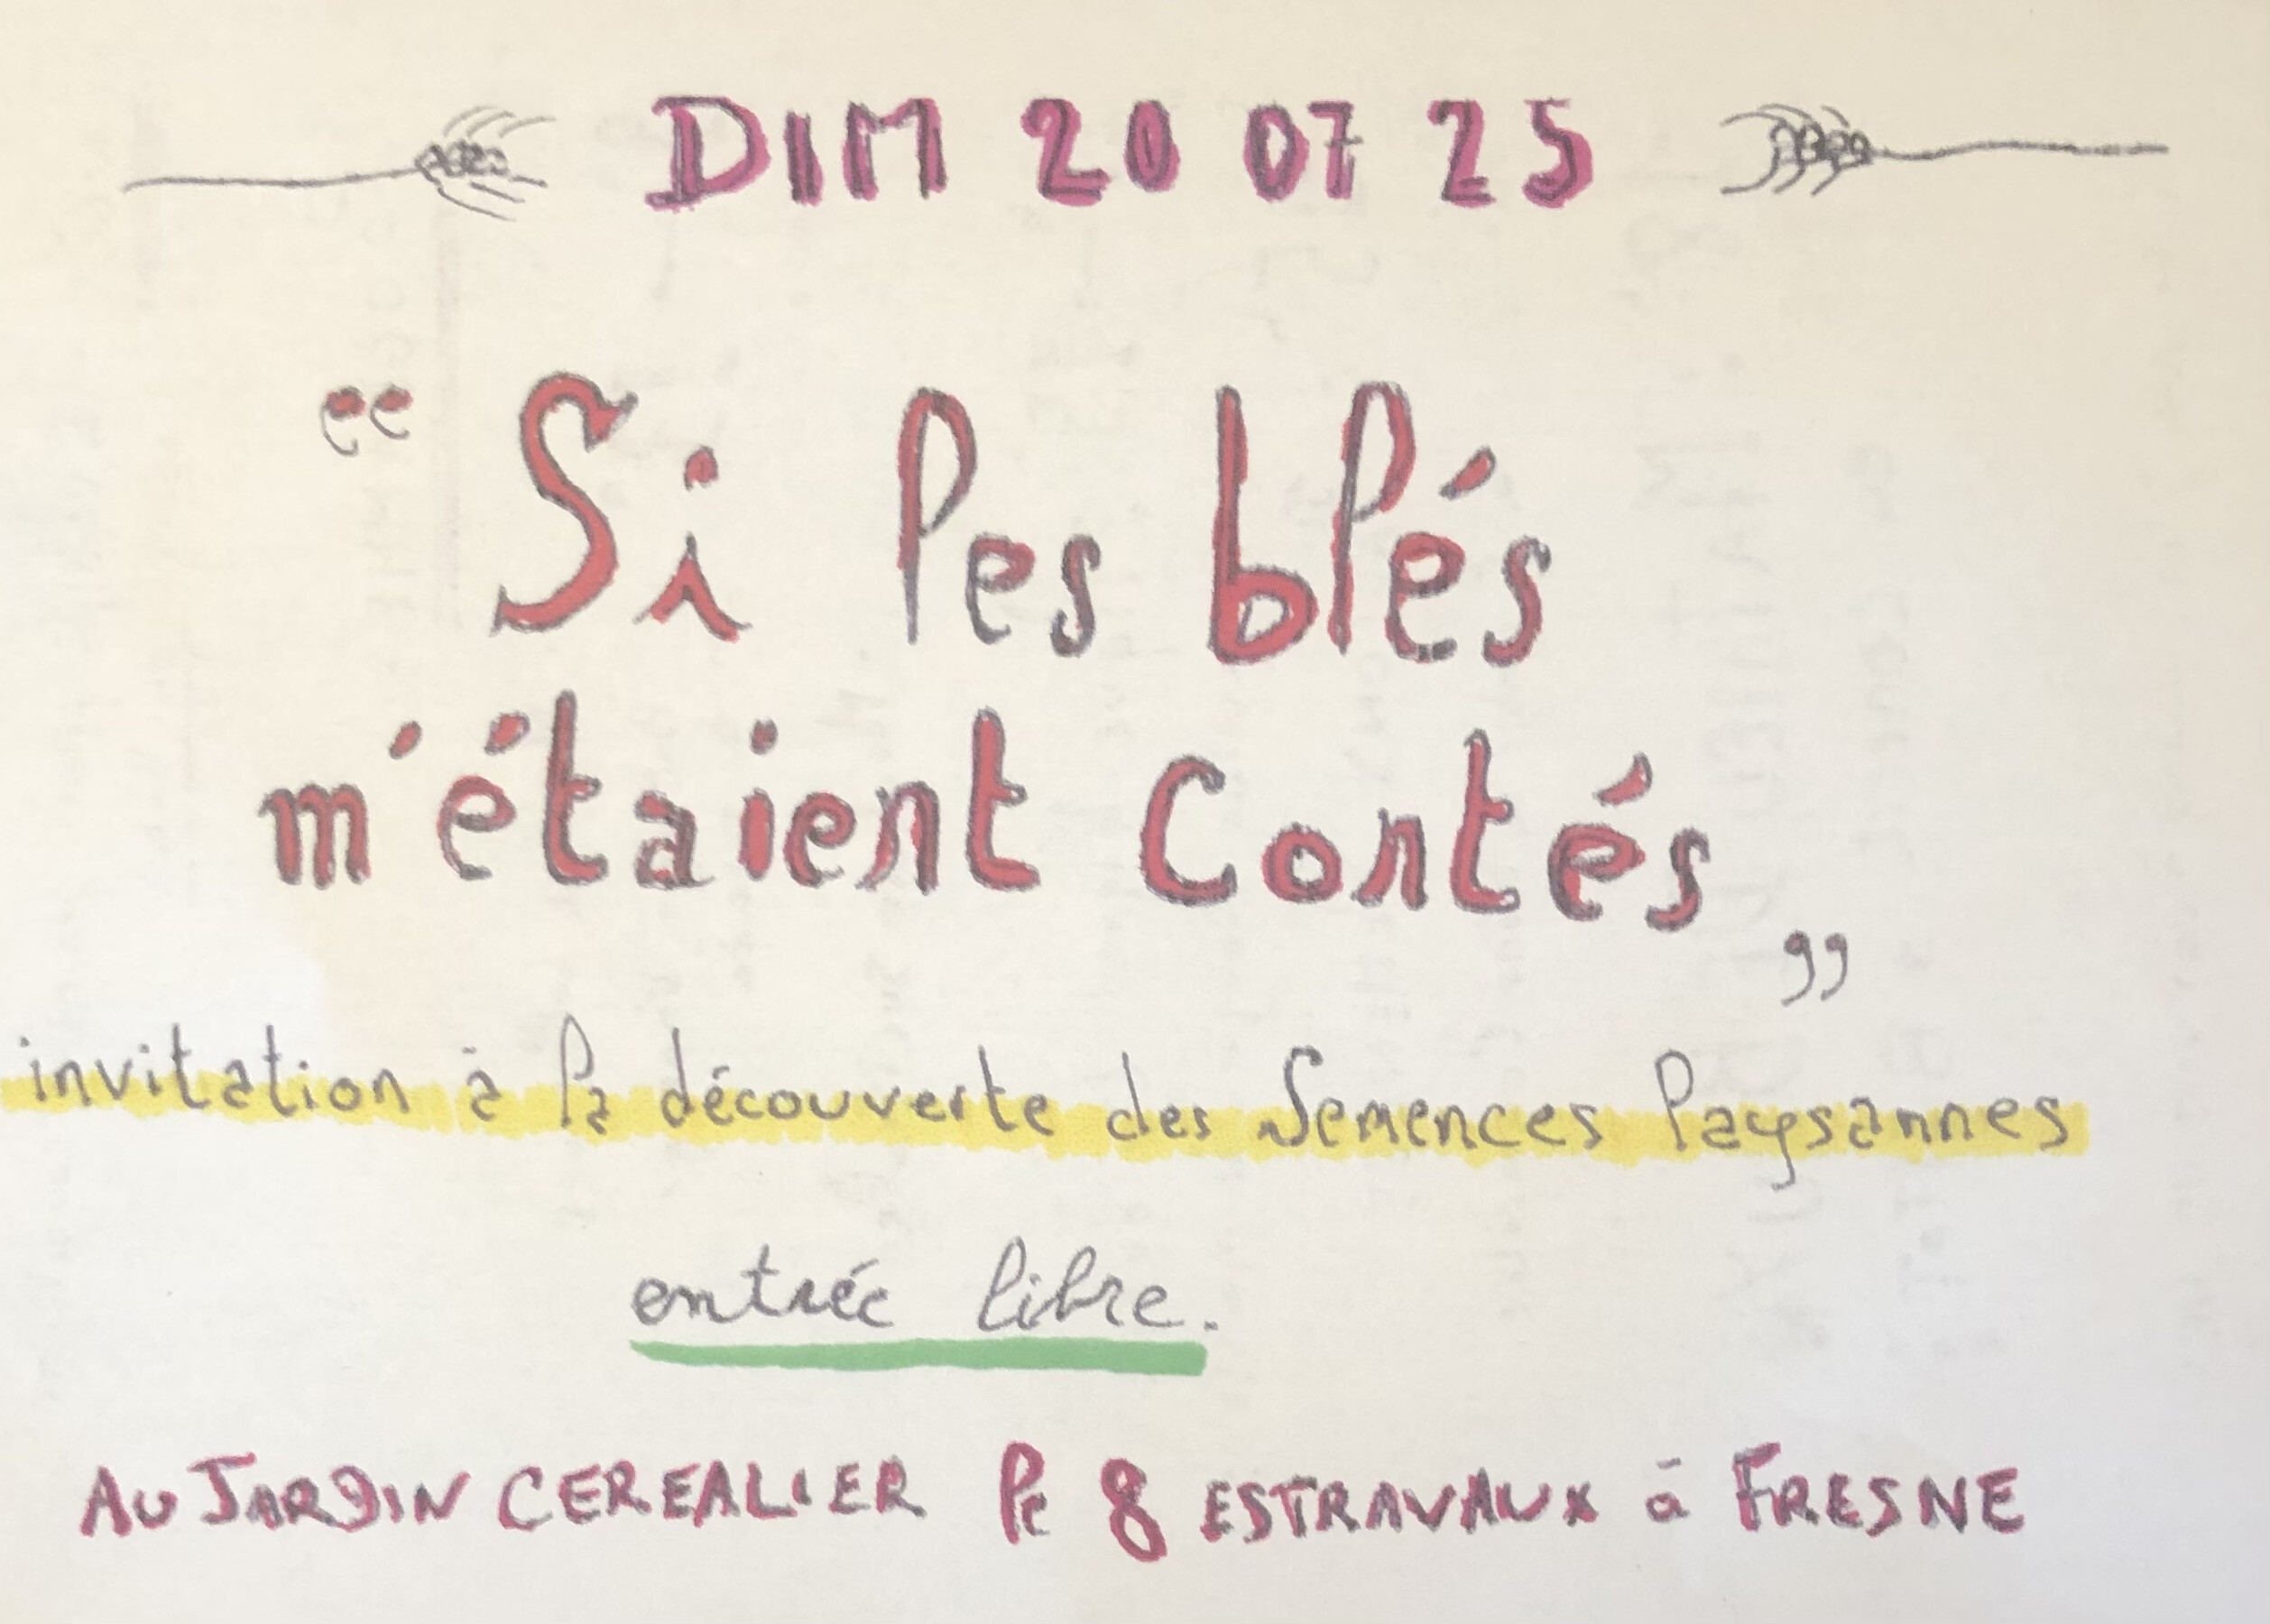 DIM 20 07 25
“Si les blés
m'étaient Contés”
invitation à la découverte des Semences Paysannes
entrée libre.
AU JARDIN CEREALIER le 8 ESTRAVAUX à FRESNE